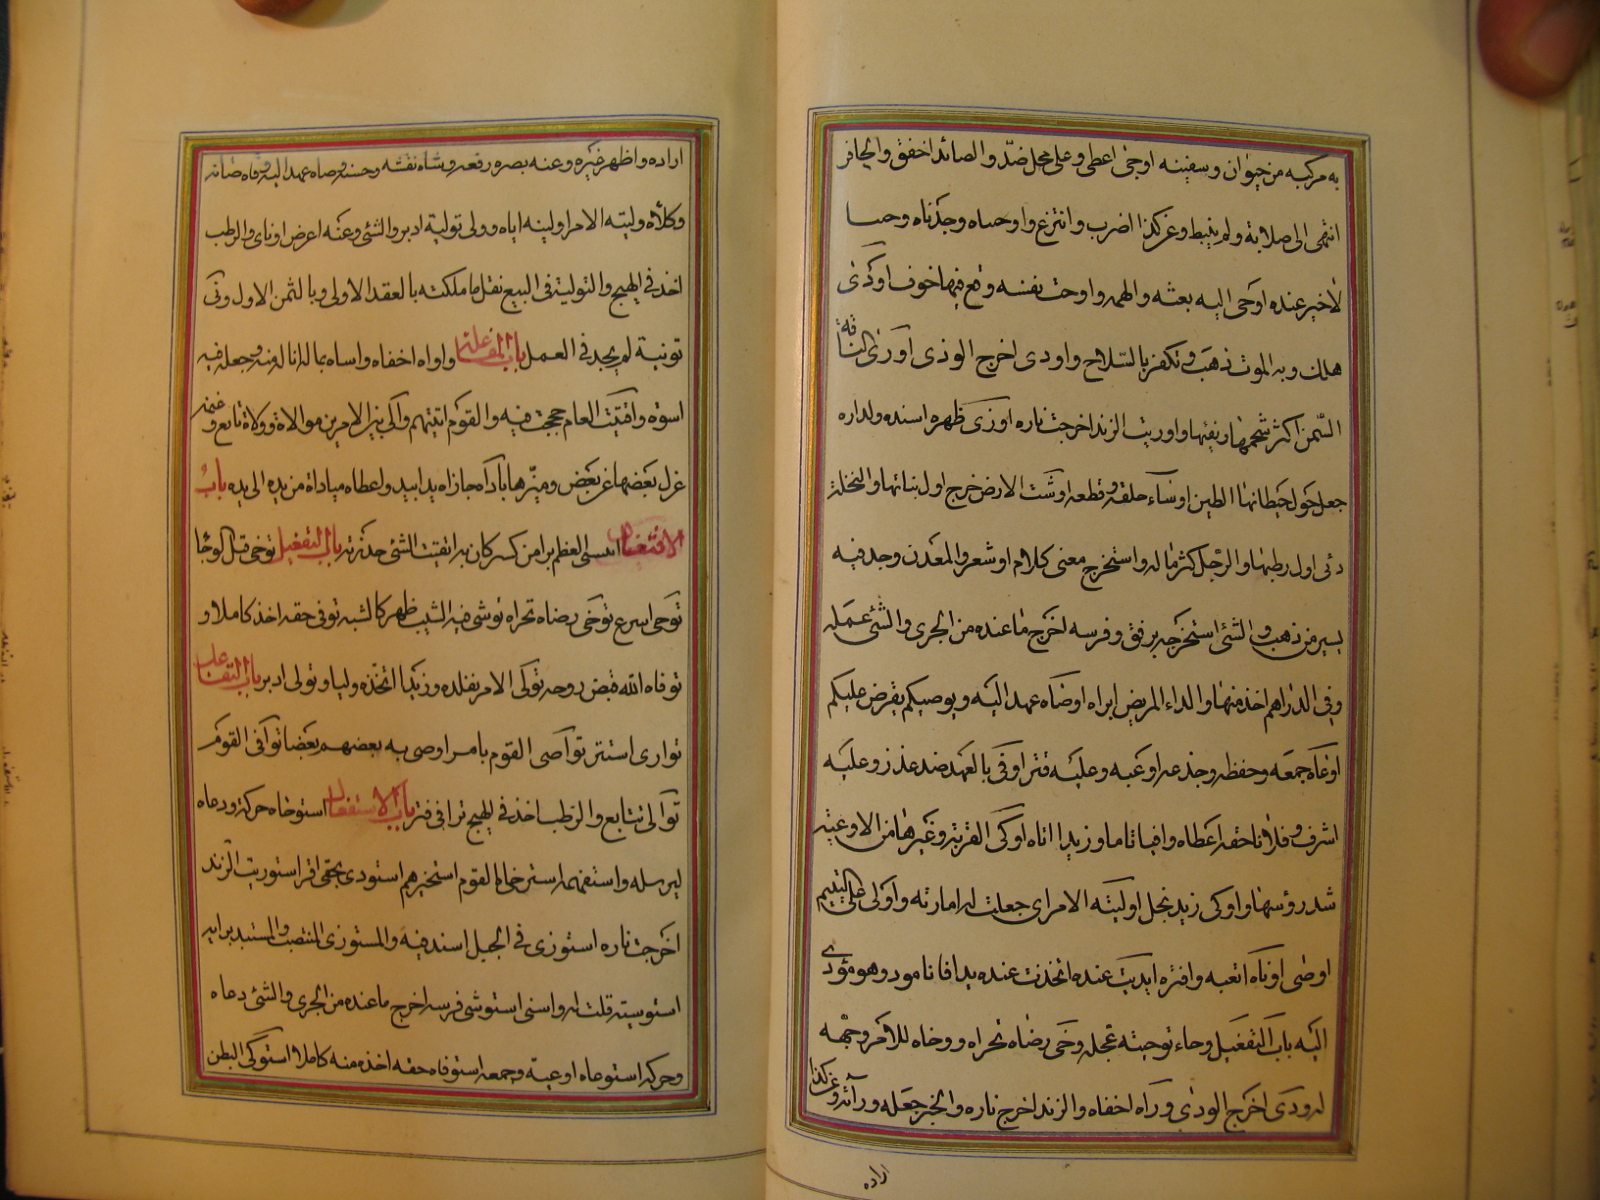 به مركبه من حيوان وسفينه اوجى اعطى وعلى محل ضدّ والصائد اخفق والحافر
انتهى الى صلابة ولم ينبط وعن كذا اضرب وانتزع واوحاه وجدناه وحيا
لا خير عنده اوحى اليه بعثه والهمه واوحت نفسه وقع فيها خوف اودى
هلك وبه الموت ذهب وتكفر بالسلاح واودى اخرج الودى اورى الناقة
السّمن اكثر شحمها ونقيها واوريت الزند اخرجت ناره اوزى ظهره اسنده ولداره
جعل حول حيطانها الطين اوساء حلقه وقطعه اوشت الارض خرج اول نباتها والنخلة
رئى اول رطبها والرجل كثر ماله واستخرج معنى كلام او شعر والمعدن وجد فيه
يسير من ذهب والشئ استخرجه برفق وفرسه اخرج ما عنده من الجرى والشئ عمله
وفى الدراهم اخذ منها والداء المريض ابراه اوصاه عهد اليه ويوصيكم يفرض عليكم
اوعاه جمعه وحفظه وجدعه اوعبه وعليه قتر اوفى بالعهد ضد غدر وعليه
اشرف وفلانا حقه اعطاه وافيا تاما وزيدا اتاه اوكى القربة وغيرها من الاوعية
شد رؤسها واوكى زيد بخل اوليته الامر اى جعلت له امارته واولى على اليتيم
اوصى اوناه اتعبه وافتره ايديت عنده اتخذت عنده يدا فانا مود وهو مؤدى
اليه باب التفعيل وحاء توحية عجله وخى رضاه تحراه ووخاه للامر وجهه
له ودى اخرج الودى وراه اخفاه والزند اخرج ناره والخبر جعله ورآئه وعن كذا
اراده
اراده واظهر غيره وعنه بصره رفعه وشاه نقشه وحسنه وصاه عهد اليه وقاه صانه
وكلأه وليته الامر اوليته اياه وولى تولية ادبر والشئ وعنه اعرض او نأى والرطب
اخذ فى الهيج والتولية فى البيع نقل ما ملكته بالعقد الاولى وبالثمن الاول ونى
تونية لم يجد فى العمل باب المفاعلة واواه اخفاه واساه بماله اناله منه وجعله فيه
اسوة وافيت العام حججت فيه والقوم اتيتهم والى بين الامرين موالاة وولاء تابع وغنمه
عزل بعضها عن بعض وميّزها ياداه جازاه يدا بيد واعطاه مياداة من يده الى يده باب
الافتعال العظم برا من كسر كان به اتقيت الشئ حذرته باب التفعيل توخى قتل
توحى اسرع توخى رضاه تحراه توشى فيه الشيب ظهر كالشبه توفى حقه اخذ كاملا و
توفاه الله قبض روحه تولى الامر تقلده وزيدا اتخذه وليا وتولى ادبر باب التفاعل
توارى استتر تواصى القوم بامر اوصى به بعضهم بعضا توافى القوم
توالى تتابع والرطب اخذ فى الهيج توانى فتر باب الاستفعال استوخاه حركه ودعاه
ليرسله واستفهمه استوخى القوم استخبرهم استودى بحقى اقر استوريت الزند
اخرجت ناره استوزى فى الجبل اسند فيه والمستوزى المنتصب والمستبد برايه
استوسيته قلت له واسنى استوشى فرسه اخرج ما عنده من الجرى والشئ دعاه
وحركه استوعاه اوعبه وجمعه استوفاه حقه اخذه منه كاملا استوكى البطن